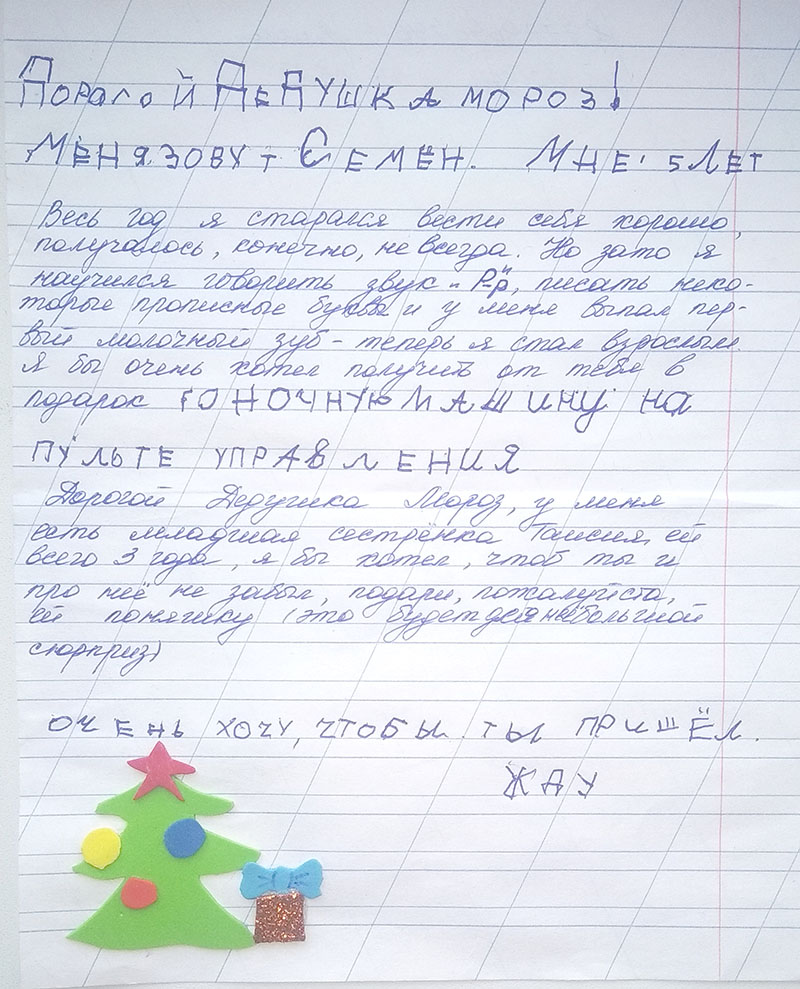 Дорагой Дедушка мороз!
Меня зовут Семён. Мне 5 Лет
Весь год я старался вести себя хорошо,
получалось, конечно, не всегда. Но зато я
научился говорить звук "Р-р", писать неко-
торые прописные буквы и у меня выпал пер-
вый молочный зуб - теперь я стал взрослым.
Я бы очень хотел получить от тебя в
подарок ГОНОЧНУЮ МАШИНУ НА
ПУЛЬТЕ УПРАВЛЕНИЯ
Дорогой Дедушка Мороз, у меня
есть младшая сестрёнка Таисия, ей
всего 3 года, я бы хотел, чтоб ты и
про неё не забыл, подари, пожалуйста,
ей поняшку (это будет для неё большой
сюрприз)
ОЧЕНЬ ХОЧУ, ЧТОБЫ ТЫ ПРИШЁЛ.
ЖДУ